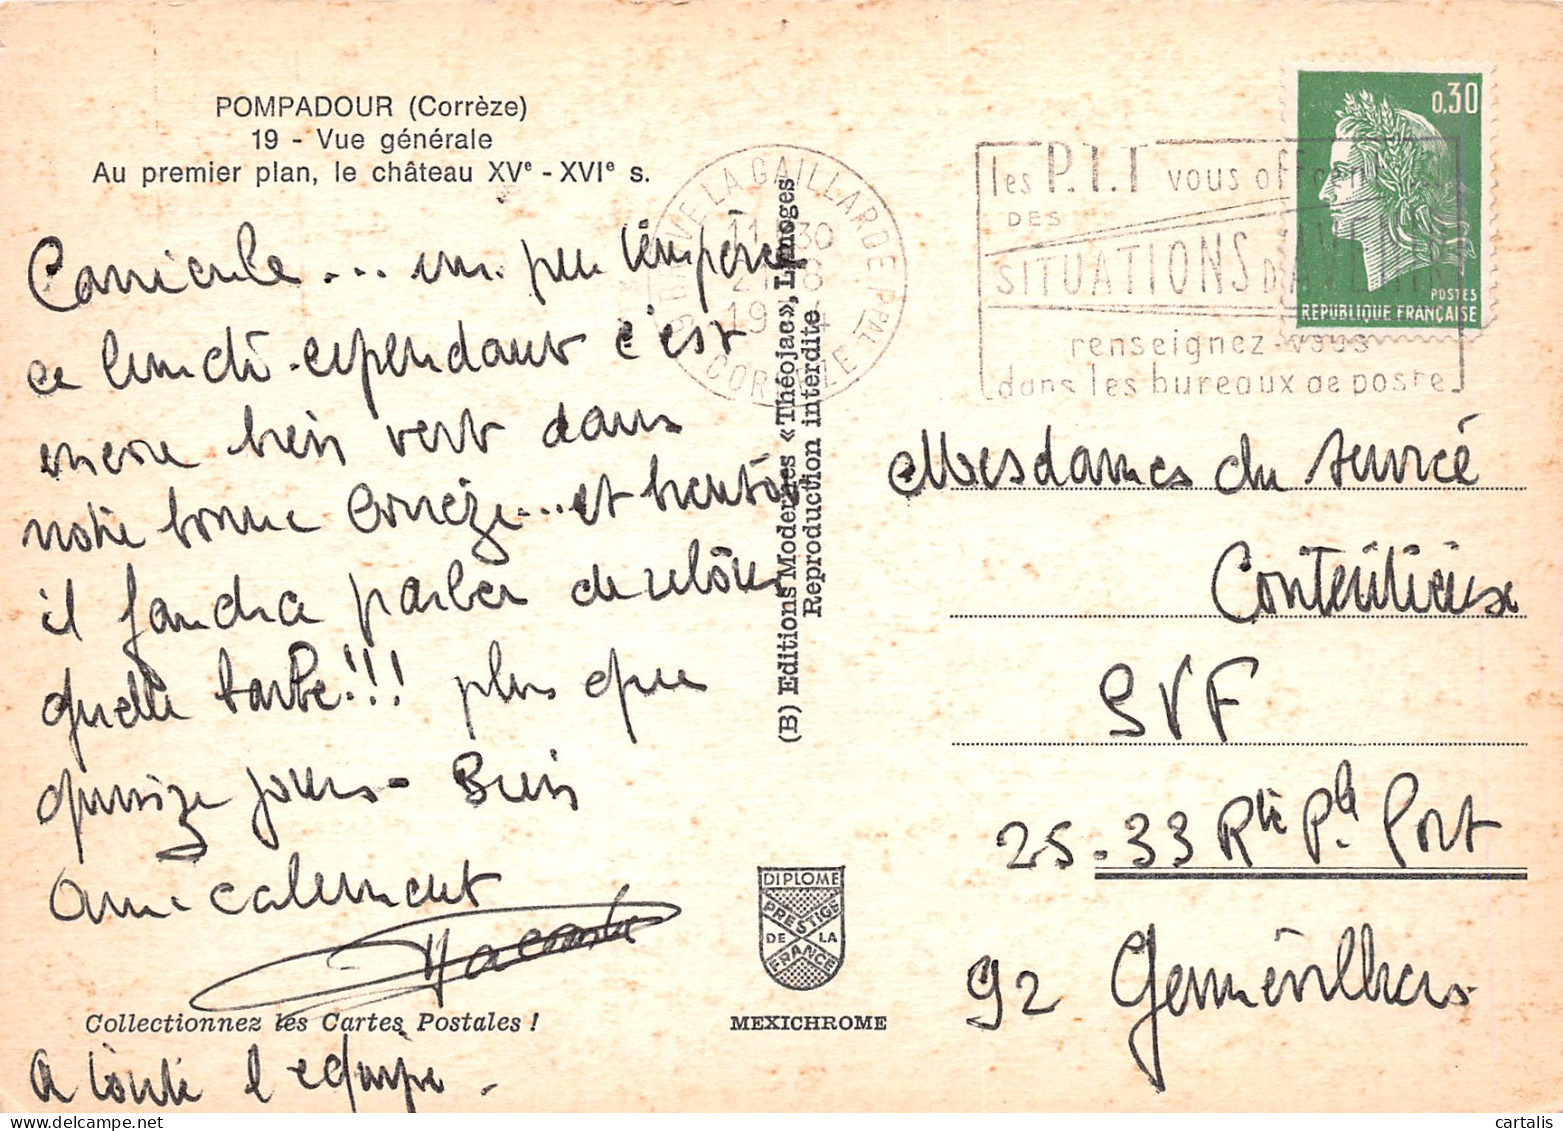 POMPADOUR (Corrèze)
19 - Vue générale
Au premier plan, le château XVe - XVIe s.
Canicule ... un peu tempérée
ce lundi - cependant c'est
encore bien vert dans
notre bonne Corrèze ... et bientôt
il faudra parler de retour
quelle tarte !!! plus que
quinze jours - Bien
amicalement
Collectionnez les Cartes Postales !
A toute l'equipe -
(B) Editions Modernes «Théojac», Limoges
Reproduction interdite
BRIVE LA GAILLARDE PPAL
11 30
8
19 4
CORREZE
les P.T.T vous offrent
DES
SITUATIONS D'AVENIR
renseignez-vous
dans les bureaux de poste
0,30
POSTES
REPUBLIQUE FRANÇAISE
Mesdames du Service
Contentieux
SVF
25-33 Rte Pple Port
92 Gennevilliers
DIPLOME
PRESTIGE
DE LA
FRANCE
MEXICHROME
cartalis